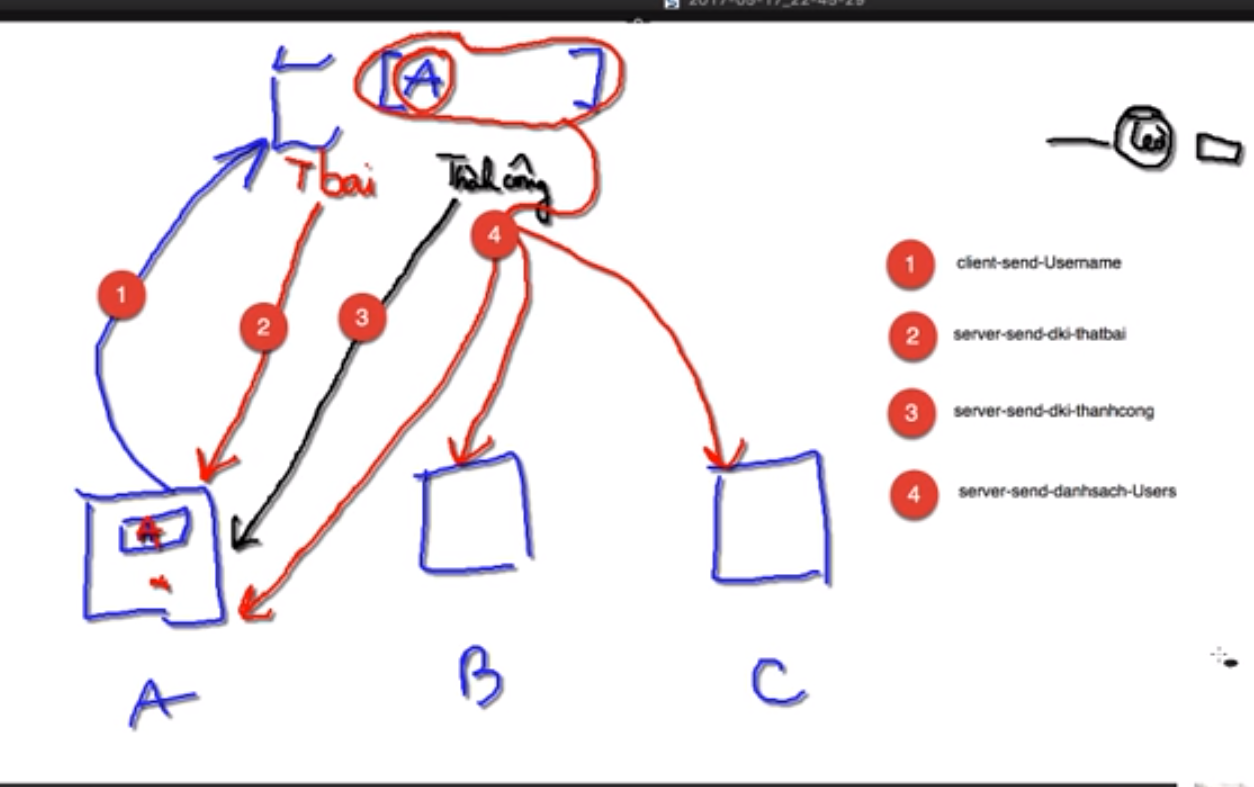 2017-05-17_22-45-29
[A ]
T bại
Thành công
Tèo
4
1
2
3
1 client-send-Username
2 server-send-dki-thatbai
3 server-send-dki-thanhcong
4 server-send-danhsach-Users
A
A
B
C